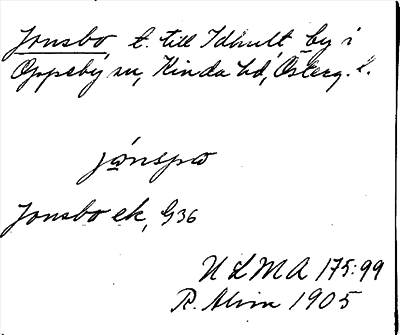 Jonsbo t. till Idhult by i
Oppeby sn, Kinda hd, Österg. l.
jònspω
Jonsbo ek, G36
ULMA 175:99
R. Alvin 1905